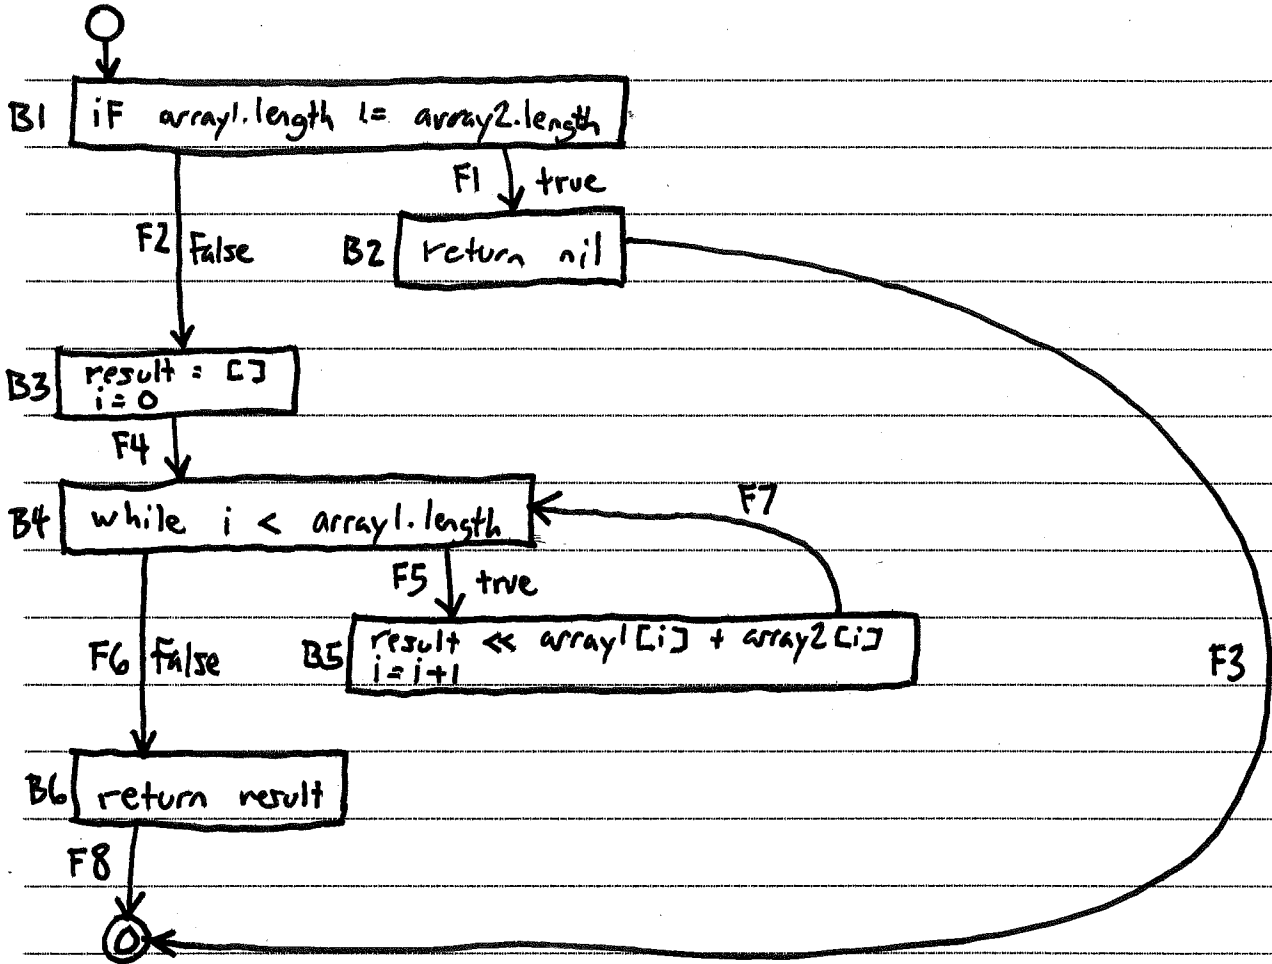 B1
iF array1.length != array2.length
F1 true
F2 False
B2
return nil
B3
result = []
i = 0
F4
B4
while i < array1.length
F7
F5 true
B5
result << array1[i] + array2[i]
i = i + 1
F6 False
F3
B6
return result
F8